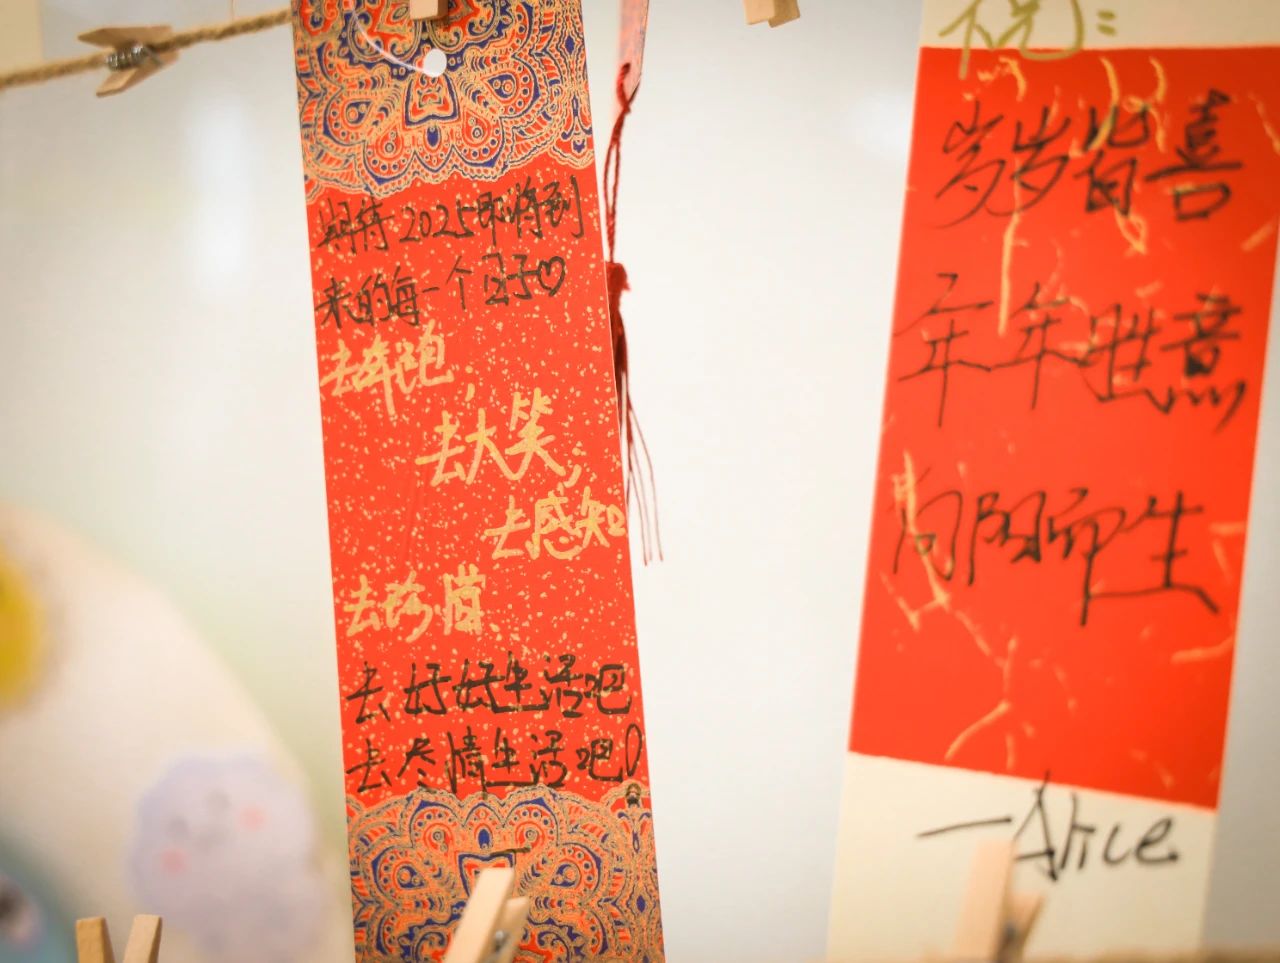 期待2025即将到
来的每一个日子♡
去奔跑;
去大笑;
去感知
去珍惜
去好好生活吧
去尽情生活吧!
祝:
岁岁皆喜
年年胜意
向阳而生
—Alice